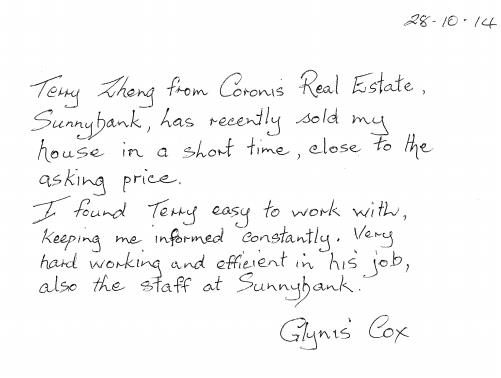 28-10-14
Terry Zheng from Coronis Real Estate,
Sunnybank, has recently sold my
house in a short time, close to the
asking price.
I found Terry easy to work with,
keeping me informed constantly. Very
hard working and efficient in his job,
also the staff at Sunnybank.
Glynis Cox